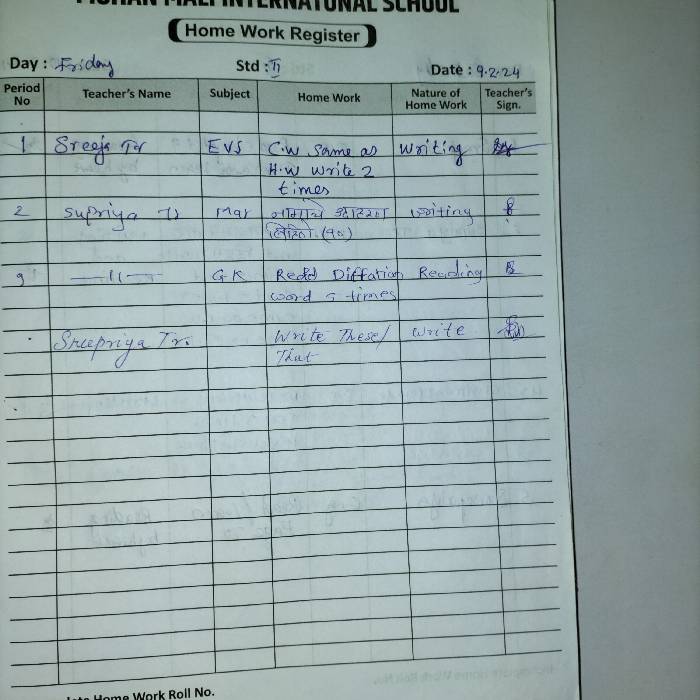 MOHAN MALI INTERNATONAL SCHOOL
Home Work Register
Day : Friday Std : II Date : 9.2.24
Period No Teacher's Name Subject Home Work Nature of Home Work Teacher's Sign.
1 Sreeja Tr EVS C.W same as writing
H.W write 2
times
2 Supriya Tr Mar writing
लिहिणे. (१०)
9 —11— G.K Read Diffation Reading
word 5 times
Shreepriya Tr. Write These/ write
That
Home Work Roll No.